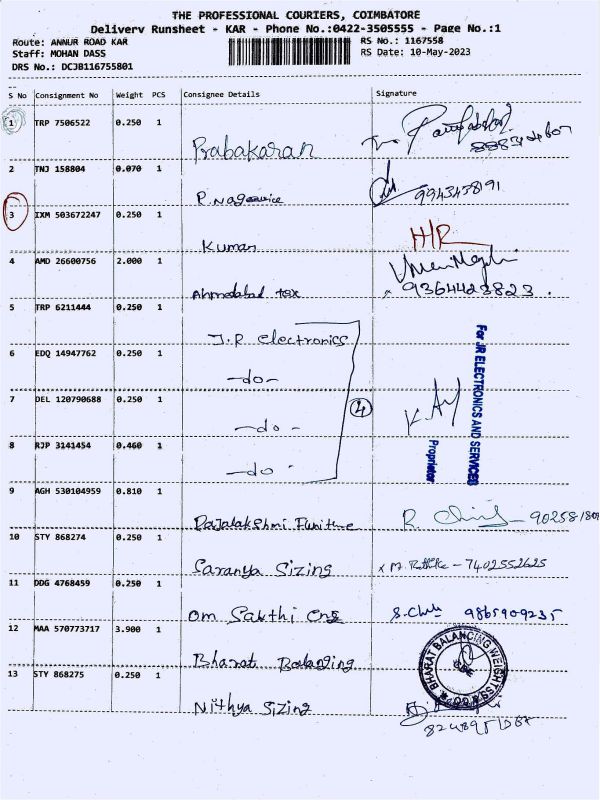 THE PROFESSIONAL COURIERS, COIMBATORE
Delivery Runsheet - KAR - Phone No.:0422-3505555 - Page No.:1
Route: ANNUR ROAD KAR
RS No.: 1167558
Staff: MOHAN DASS
RS Date: 10-May-2023
DRS No.: DCJB116755801
S No Consignment No Weight PCS Consignee Details Signature
1 TRP 7506522 0.250 1
Prabakaran
2 TNJ 158804 0.070 1
P. 9943458191
3 IXM 503672247 0.250 1
Kuman H/R
4 AMD 26600756 2.000 1
Ahmedabad tex 9364423823.
5 TRP 6211444 0.250 1
J.R electronics
6 EDQ 14947762 0.250 1
-do-
7 DEL 120790688 0.250 1
-do-
4
8 RJP 3141454 0.460 1
-do-
For JR ELECTRONICS AND SERVICES
Proprietor
9 AGH 530104959 0.810 1
Rajalakshmi R.
10 STY 868274 0.250 1
Saranya Sizing 7402552625
11 DDG 4768459 0.250 1
Om Sakthi Eng 9865909235
12 MAA 570773717 3.900 1
Bharat Balanging
BHARAT BALANCING WEIGHTSS
CBE
13 STY 868275 0.250 1
Nithya Sizing